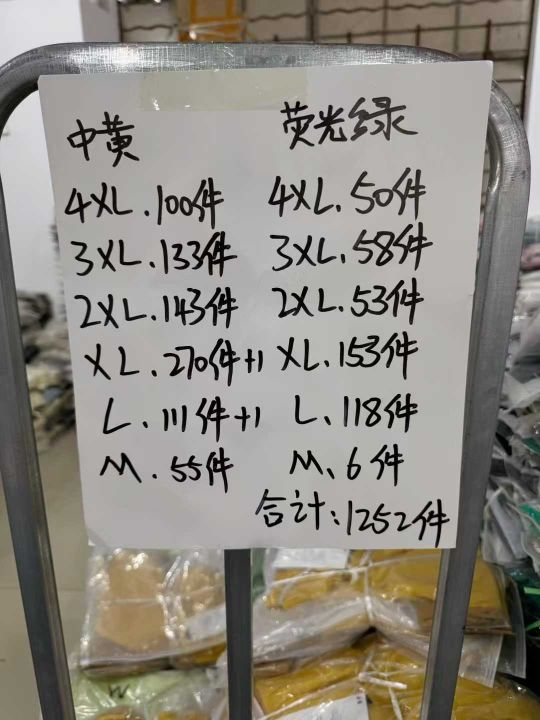 中黄
4XL.100件
3XL.133件
2XL.143件
XL.270件+1
L.111件+1
M.55件
荧光绿
4XL.50件
3XL.58件
2XL.53件
XL.153件
L.118件
M、6件
合计:1252件
M